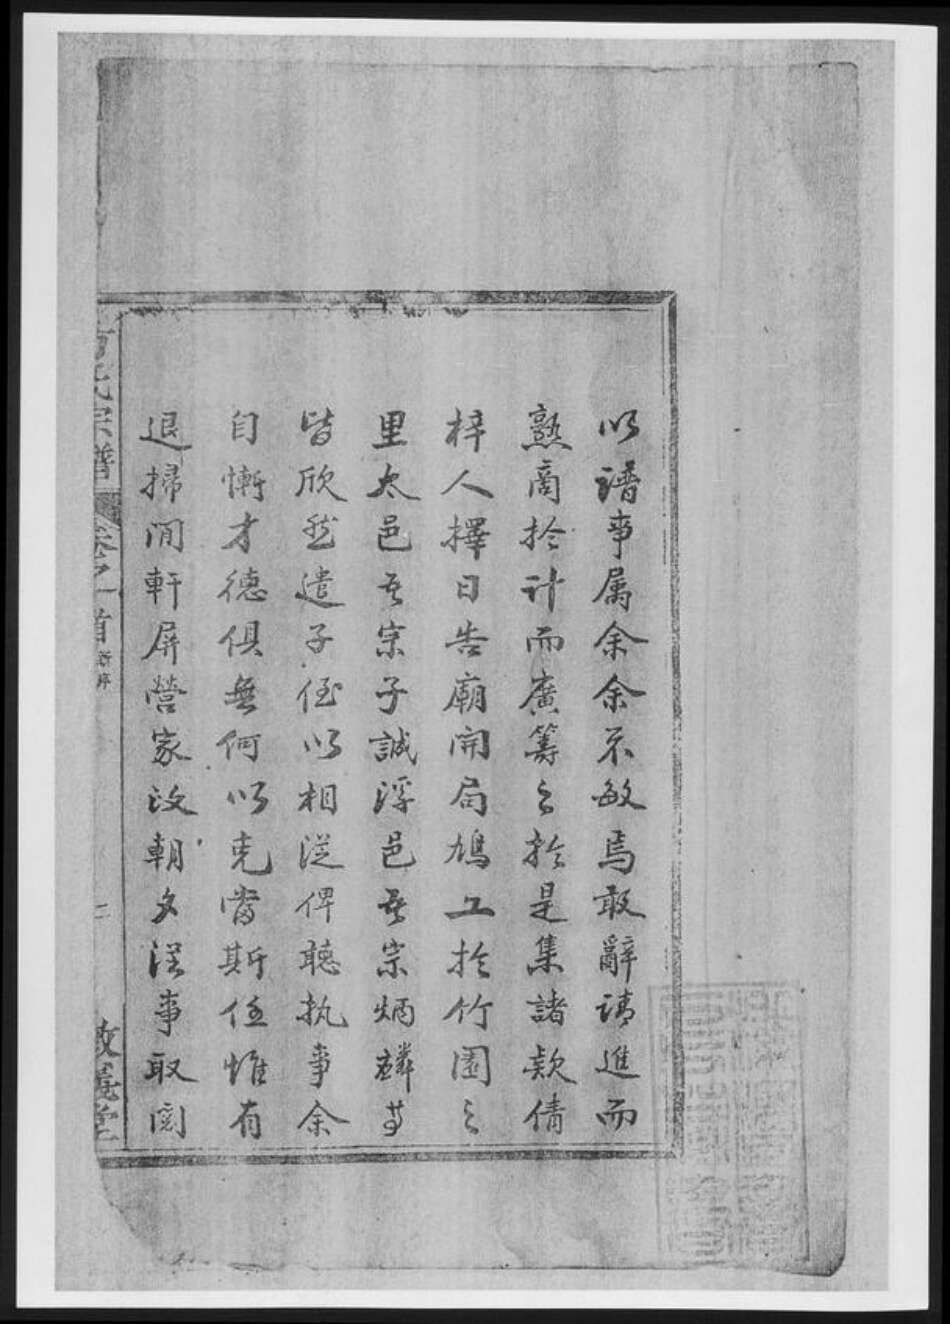 以譜事属余余不敏焉敢辭請進而
熟商於計而廣籌之於是集諸欵倩
梓人擇日告廟開局鳩工於竹園之
里太邑吾宗子誠浮邑吾宗炳麟等
皆欣然遣子侄以相從俾聽執事余
自慚才德俱無何以克當斯任惟有
退掃閒軒屏營家政朝夕從事取閱
氏宗譜
卷之首
新序
二
敦義堂